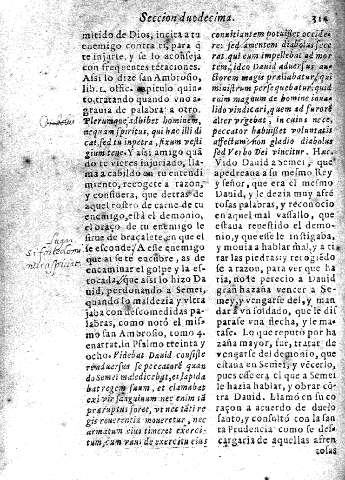 Seccion duodecima. 314
mitido de Dios, incita a tu
enemigo contra ti, para q̃
te injurie, y se lo aconseja
con frequentes tẽtaciones.
Assi lo dize san Ambrosio,
lib. 1. offic. capitulo quin-
to, tratando quando vno a-
grauia de palabra a otro.
Plerumque adhibet hominem,
nequam spiritus, qui hac illi di
cat, sed tu inpetra, fixum vesti
gium tene. Y assi amigo quã
do te vieres injuriado, lla-
ma a cabildo a tu entendi-
miento, recogete a razon,
y considera, que detras de
aquel rostro de carne de tu
enemigo, està el demonio,
el braço de tu enemigo le
sirue de braçalete, en que el
se esconde. A esse enemigo
que assi se te encubre, as de
encaminar el golpe, y la es-
tocada, que assi lo hizo Da
uid, perdonando a Semei,
quando lo maldezia y vitra
jaba con descomedidas pa-
labras, como notó el mis-
mo san Ambrosio, tome
4. narrat. in Psalmo treinta y
ocho. Videbat Dauid consiste
re aduersus se peccatorẽ quan
do Semei maledicebat, et lapida
bat regem suum, et clamabat
exi vir sanguinum nec enim tã
præruptus foret, vt nec tãti re
gis reuerentia moueretur, nec
armatum eius timeret exerci-
tum, cum vani de exercitu eius
consistantem potuisset occide-
re: sed amentem diabolus fece
rat qui eum impellebat ad mor
tem, ideo Dauid aduersus au-
ctorem magis præliabatur, quã
ministrum persequebatur, quid
enim magnum de homine sola-
lio vindicari, quem ad furorẽ
alter vrgebat, in cains nece,
peccator habuisset voluntatis
affectum non gladio diabolus
sed Verbo Dei vincitur. Hac.
Vido Dauid a Semei, que
apedreaua a su mismo Rey
y señor, que era el mesmo
Dauid, y le dezia muy afrẽ
tosas palabras, y reconocio
en aquel mal vassallo, que
estaua reuestido el demo-
nio, y que esse le instigaba,
y mouia a hablar mal, y a ti-
rar las piedras; y recogiẽdo
se a razon, para ver que ha
ria, no le perecio a Dauid
gran hazaña vencer a Se-
mey, y vengarse del, y man-
dar a vn soldado, que le dis
parase vna flecha, y le ma-
tase. Lo que reputó por ha
zaña mayor, fue, tratar de
vengarse del demonio, que
estaua en Semei, y vécerlo,
pues esse era el que a Semei
le hazia hablar, y obrar cõ
tra Dauid. Llamó en su co
raçon a acuerdo de duelo
santo, y consultò con la san
ta Prudencia como se des-
cargaria de aquellas afren
tosas